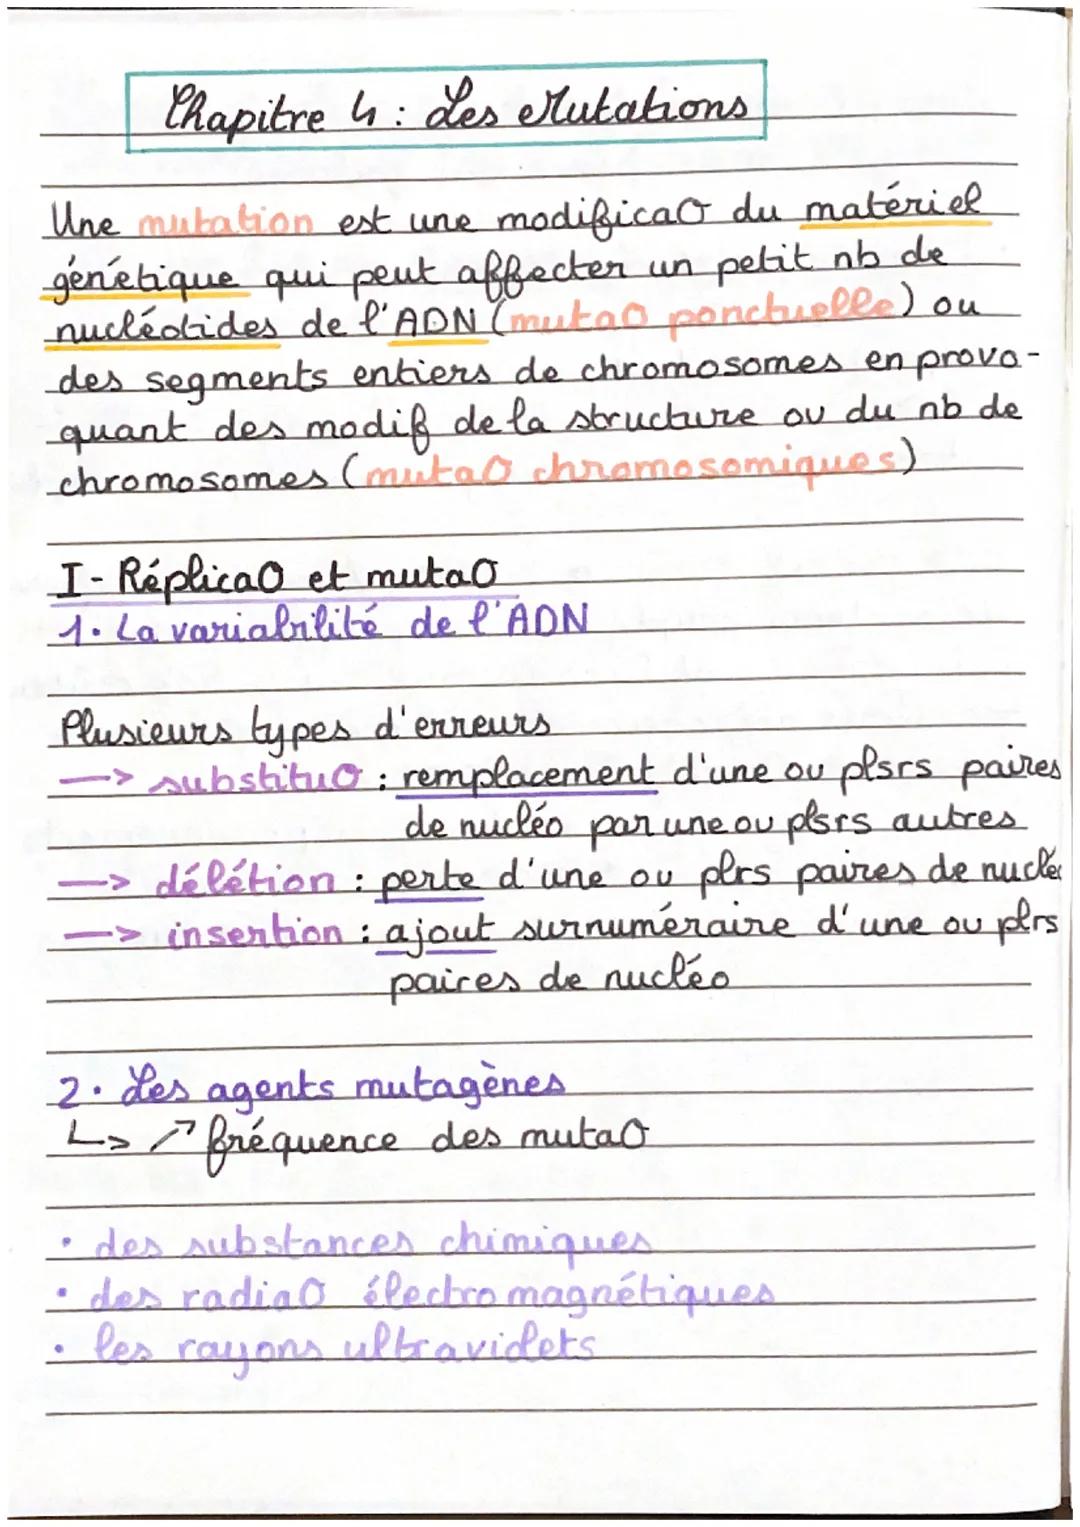 Chapitre 4 : Les Mutations
Une mutation est une modificaO du matériel
génétique qui peut affecter un petit nb de
nucléotides de l'ADN (mutaO ponctuelle) ou
des segments entiers de chromosomes en provo-
quant des modif de la structure ou du nb de
chromosomes (mutaO chromosomiques)
I - RéplicaO et mutaO
1. La variabilité de l'ADN
Plusieurs types d'erreurs
—> substituO : remplacement d'une ou plsrs paires
de nucléo par une ou plsrs autres
—> délétion : perte d'une ou plrs paires de nucléo
—> insertion : ajout surnuméraire d'une ou plrs
paires de nucléo
2. Les agents mutagènes
↳ ↗ fréquence des mutaO
• des substances chimiques
• des radiaO électromagnétiques
• les rayons ultraviolets